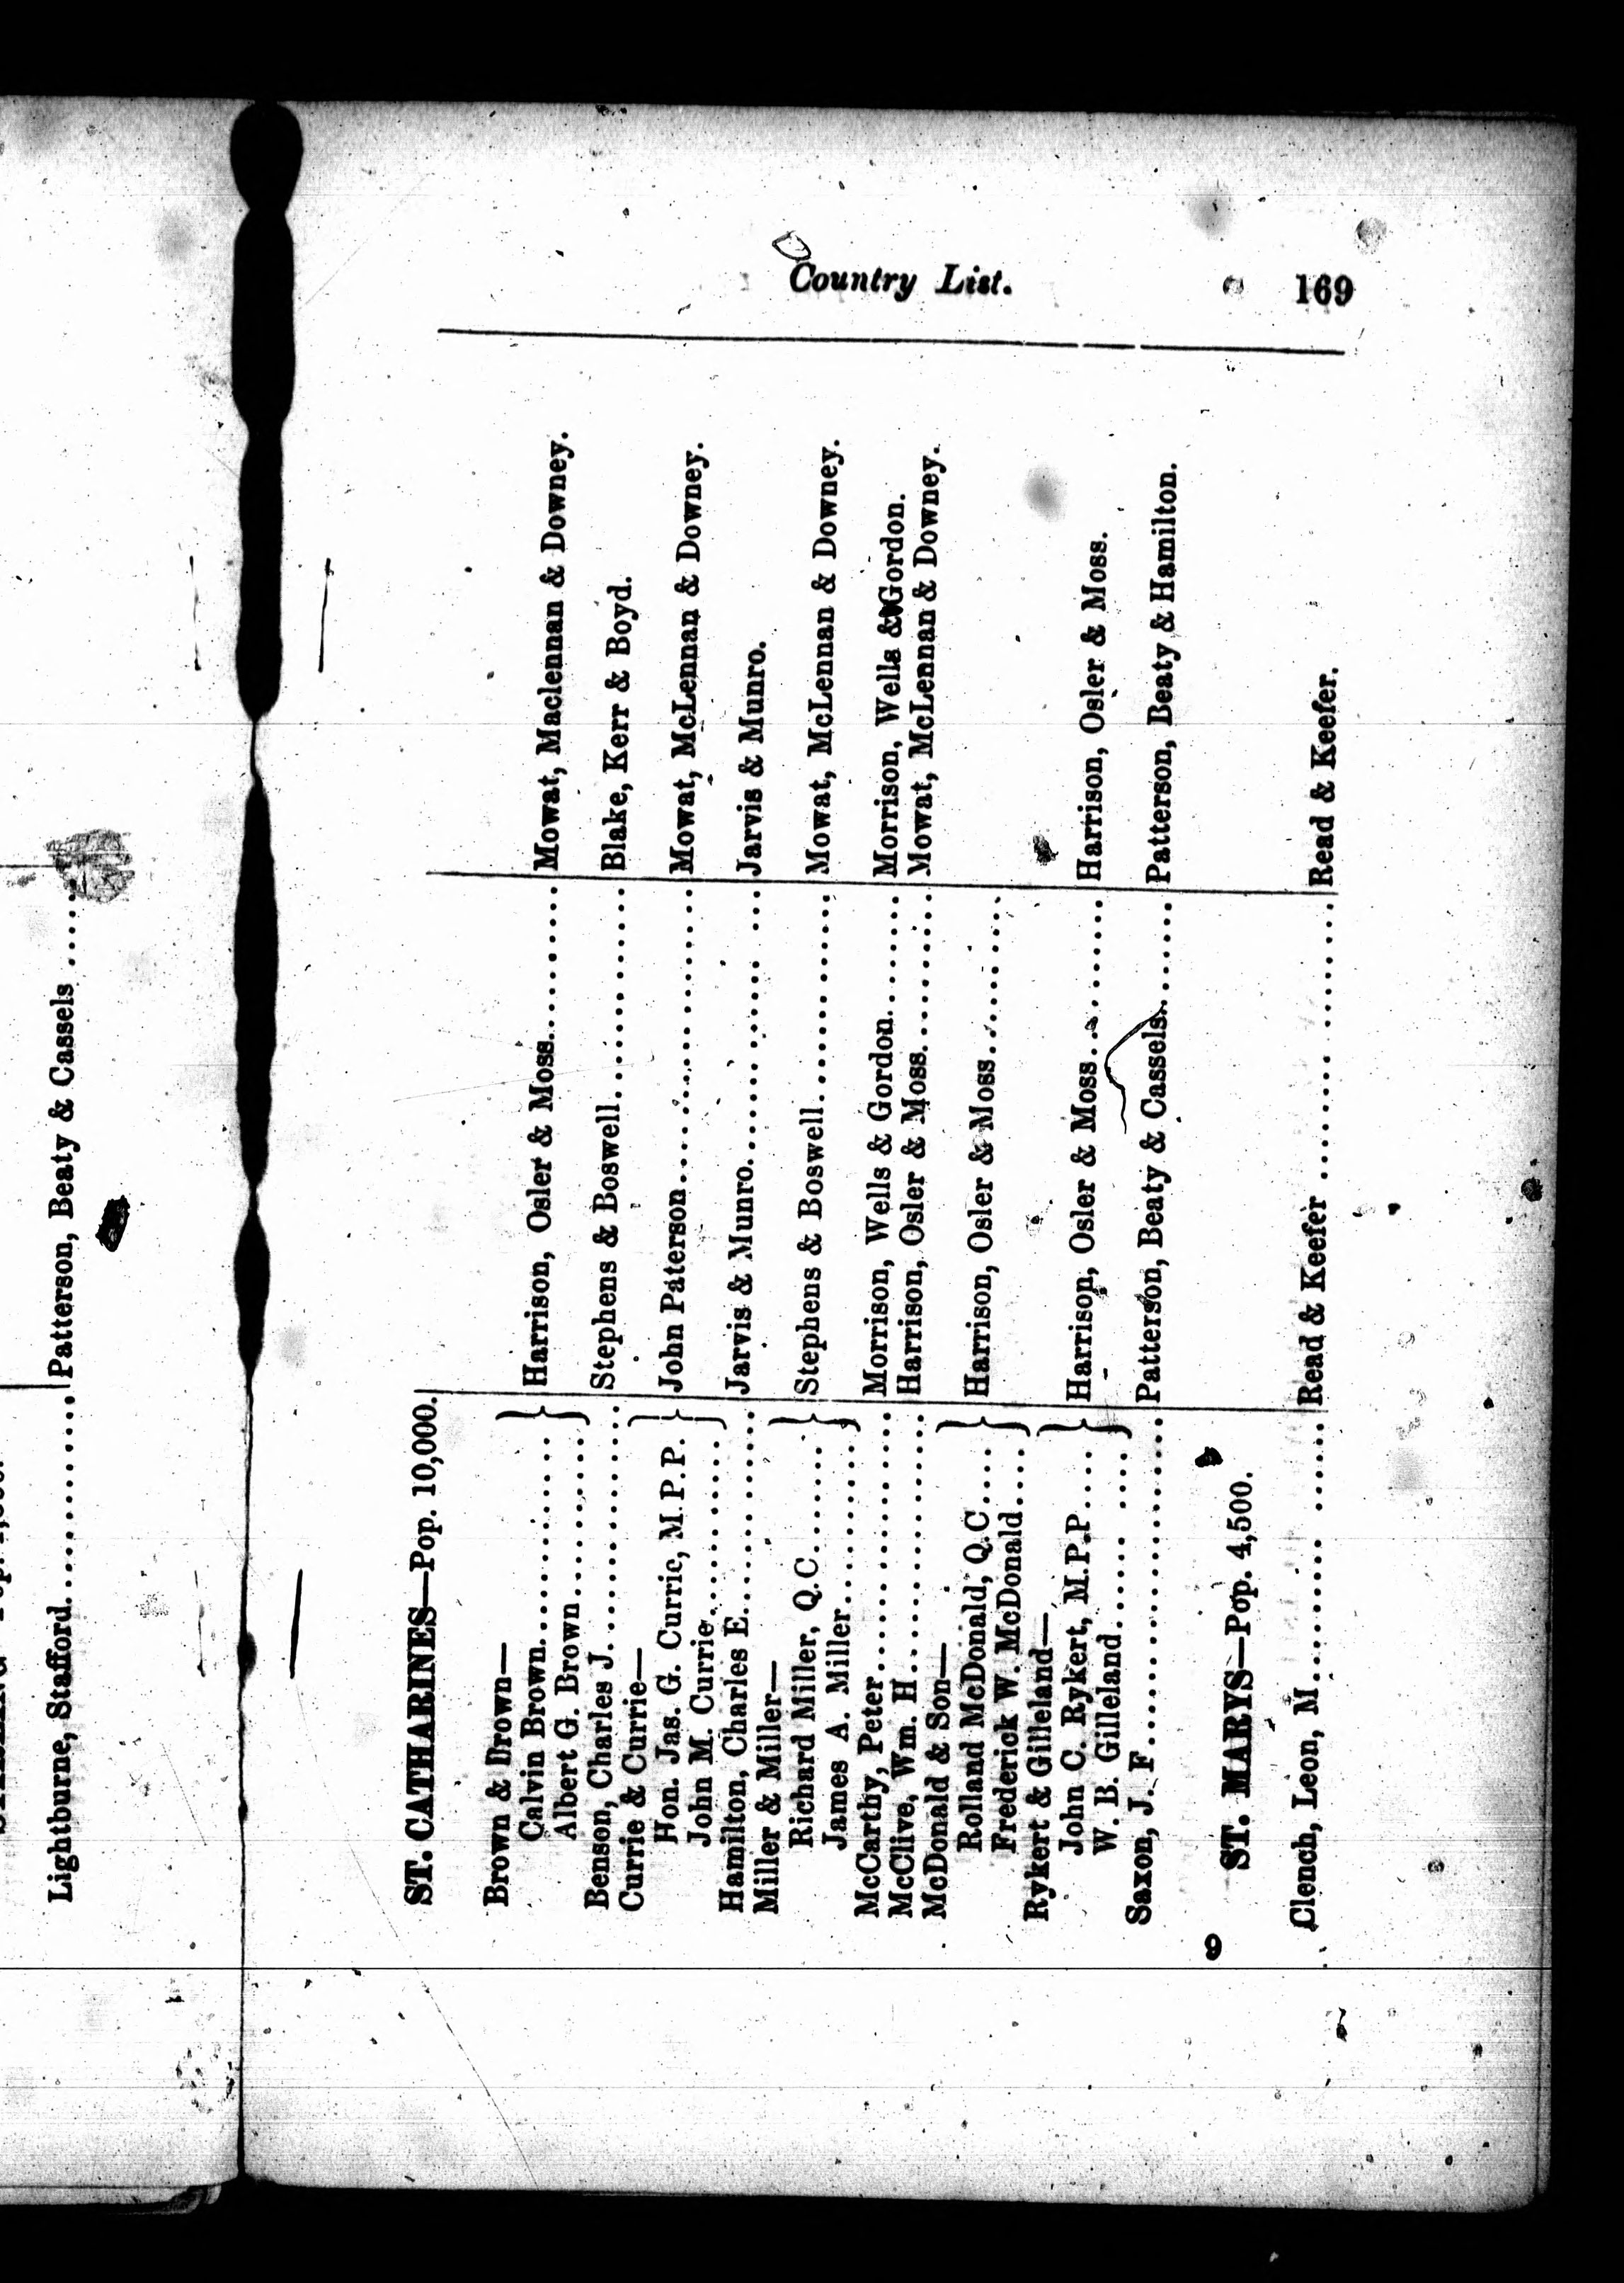 Lightburne, Stafford............ Patterson, Beaty & Cassels .....
Country List. 169
ST. CATHARINES—Pop. 10,000.
Brown & Brown—
Calvin Brown............ } Harrison, Osler & Moss.......... Mowat, Maclennan & Downey.
Albert G. Brown..........
Benson, Charles J............. Stephens & Boswell............ Blake, Kerr & Boyd.
Currie & Currie—
Hon. Jas. G. Currie, M.P.P. } John Paterson................. Mowat, McLennan & Downey.
John M. Currie............
Hamilton, Charles E............ Jarvis & Munro............... Jarvis & Munro.
Miller & Miller—
Richard Miller, Q.C....... } Stephens & Boswell............ Mowat, McLennan & Downey.
James A. Miller...........
McCarthy, Peter............... Morrison, Wells & Gordon........ Morrison, Wells & Gordon.
McClive, Wm. H............... Harrison, Osler & Moss.......... Mowat, McLennan & Downey.
McDonald & Son—
Rolland McDonald, Q.C.... } Harrison, Osler & Moss..........
Frederick W. McDonald....
Rykert & Gilleland—
John C. Rykert, M.P.P.... } Harrison, Osler & Moss.......... Harrison, Osler & Moss.
W. B. Gilleland..........
Saxon, J. F................... Patterson, Beaty & Cassels....... Patterson, Beaty & Hamilton.
ST. MARYS—Pop. 4,500.
Clench, Leon, M............... Read & Keefer ................ Read & Keefer.
9